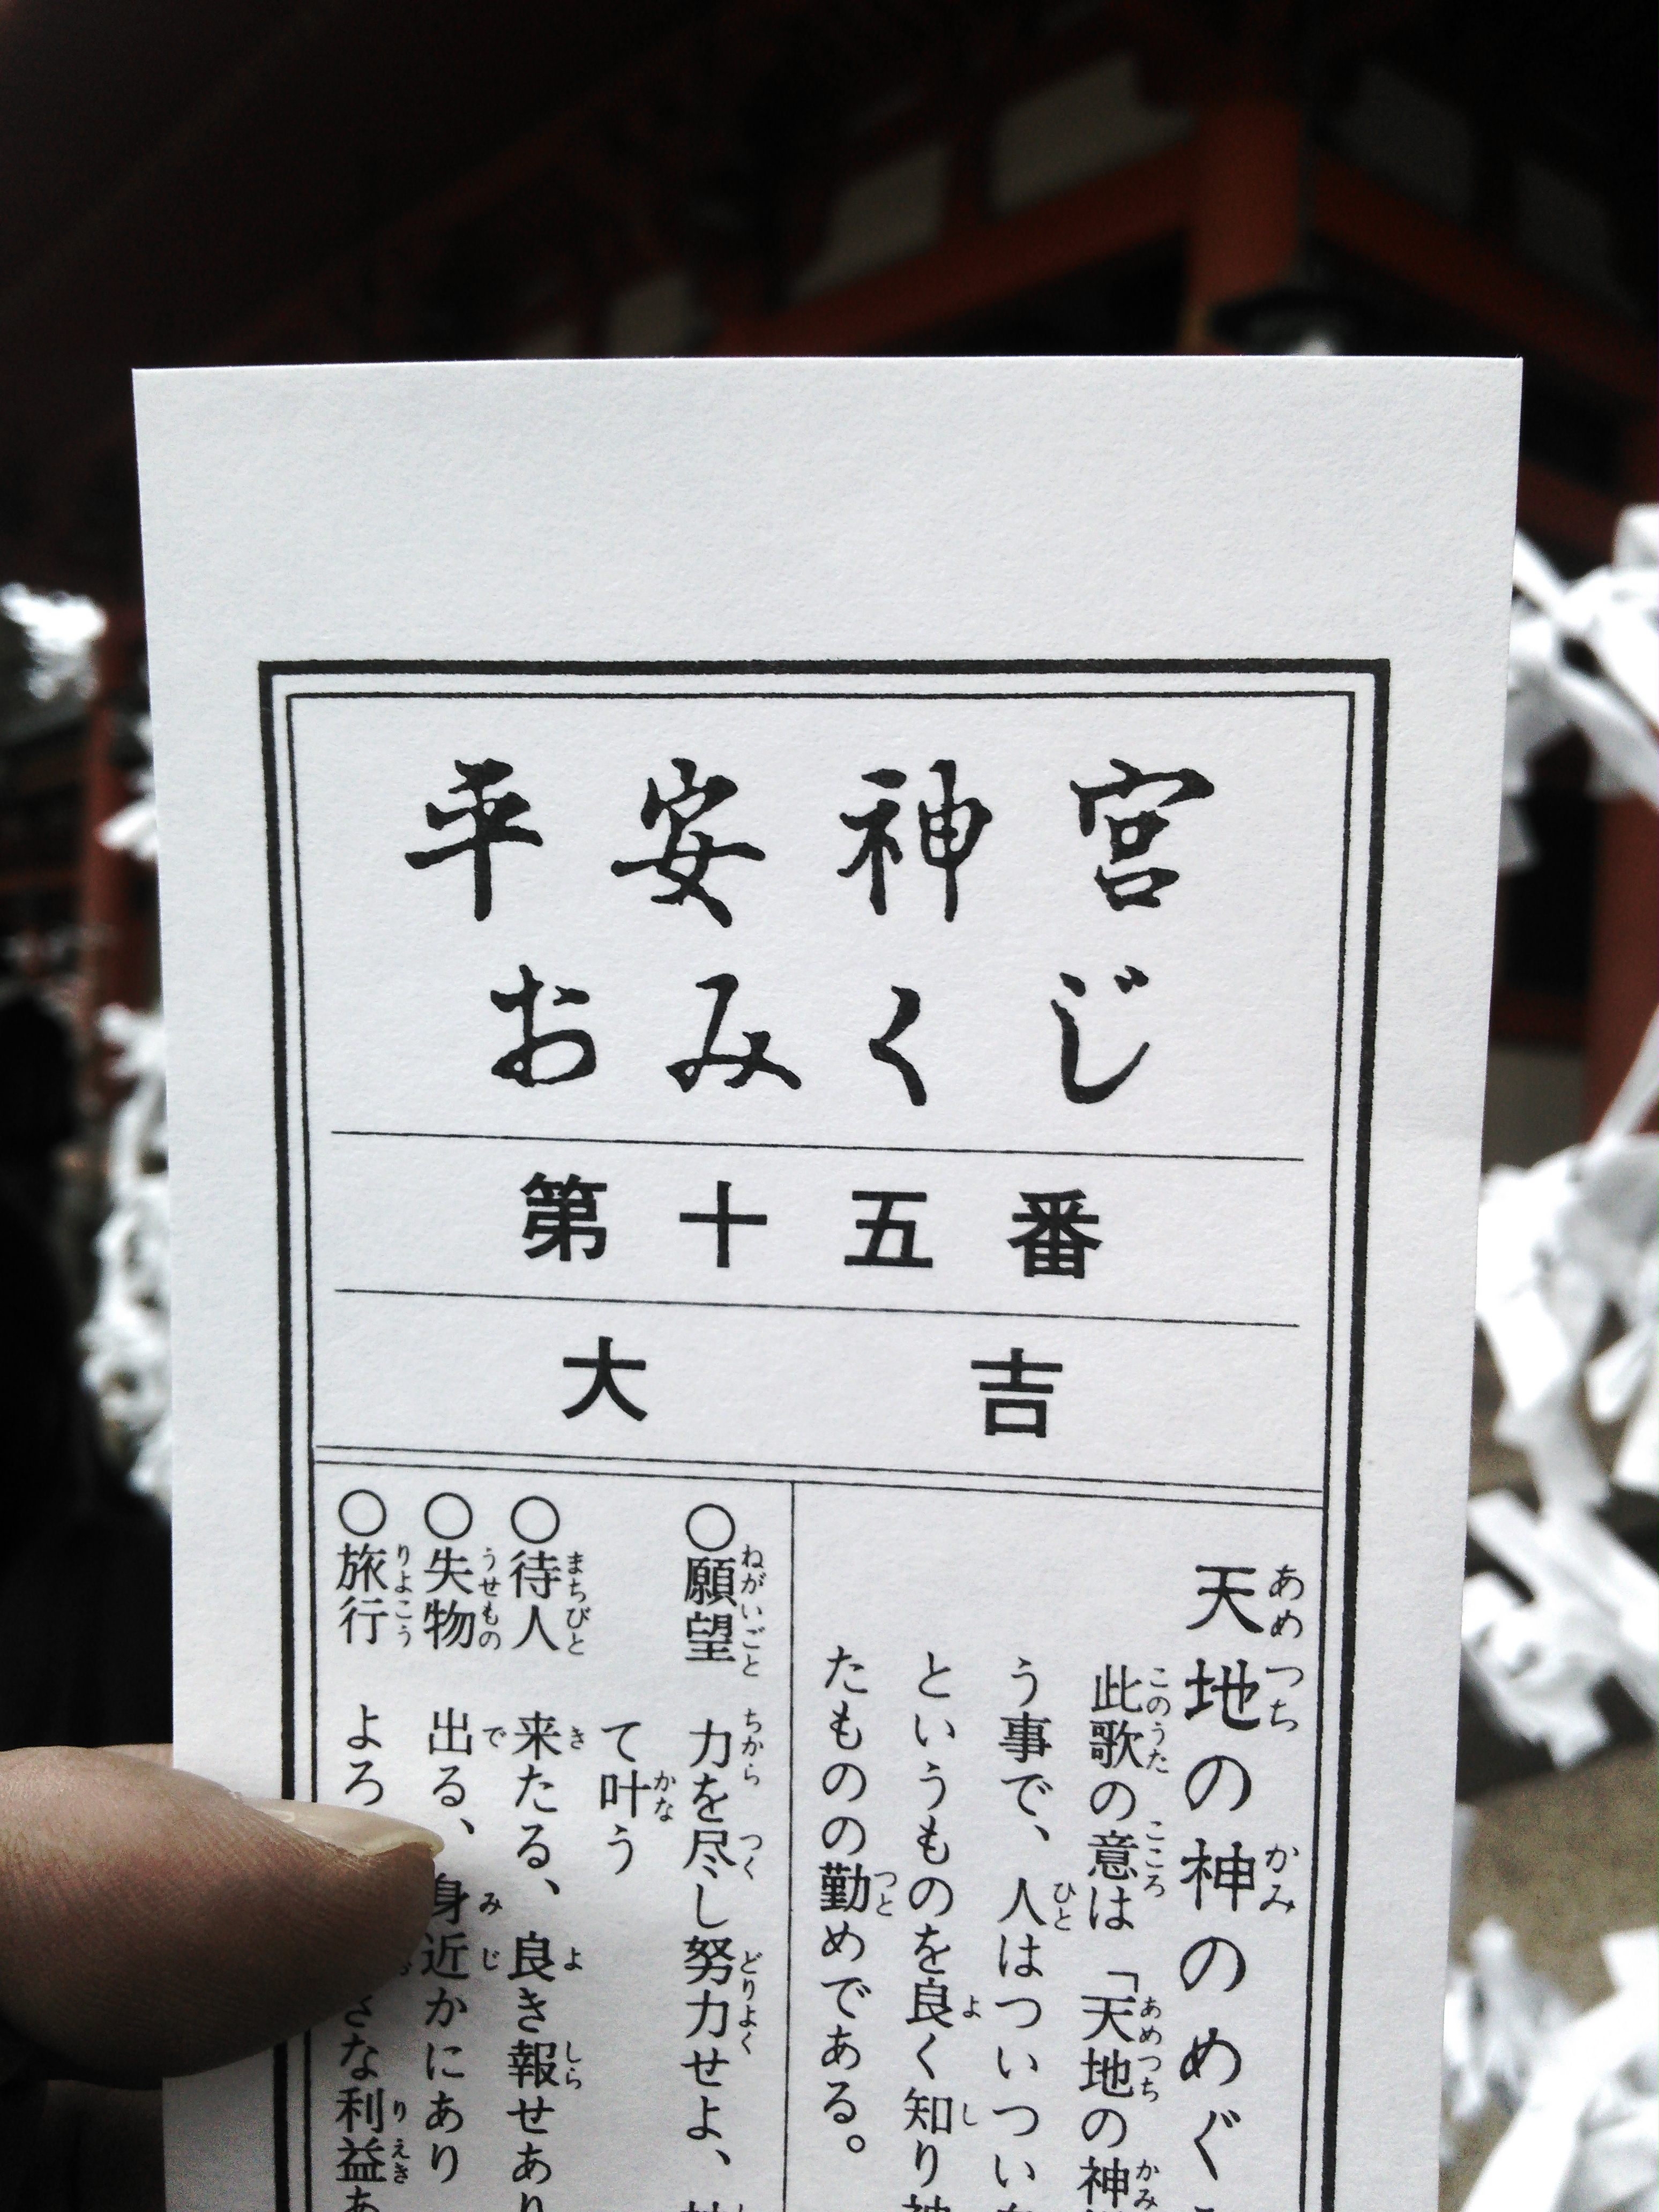 平安神宮
おみくじ
第十五番
大吉
天地の神のめぐ
此歌の意は「天地の神
う事で、人はついつい
というものを良く知り神
たものの勤めである。
○願望 力を尽し努力せよ、
て叶う
○待人 来たる、良き報せあり
○失物 出る、身近かにあり
○旅行 よろ
さな利益あ